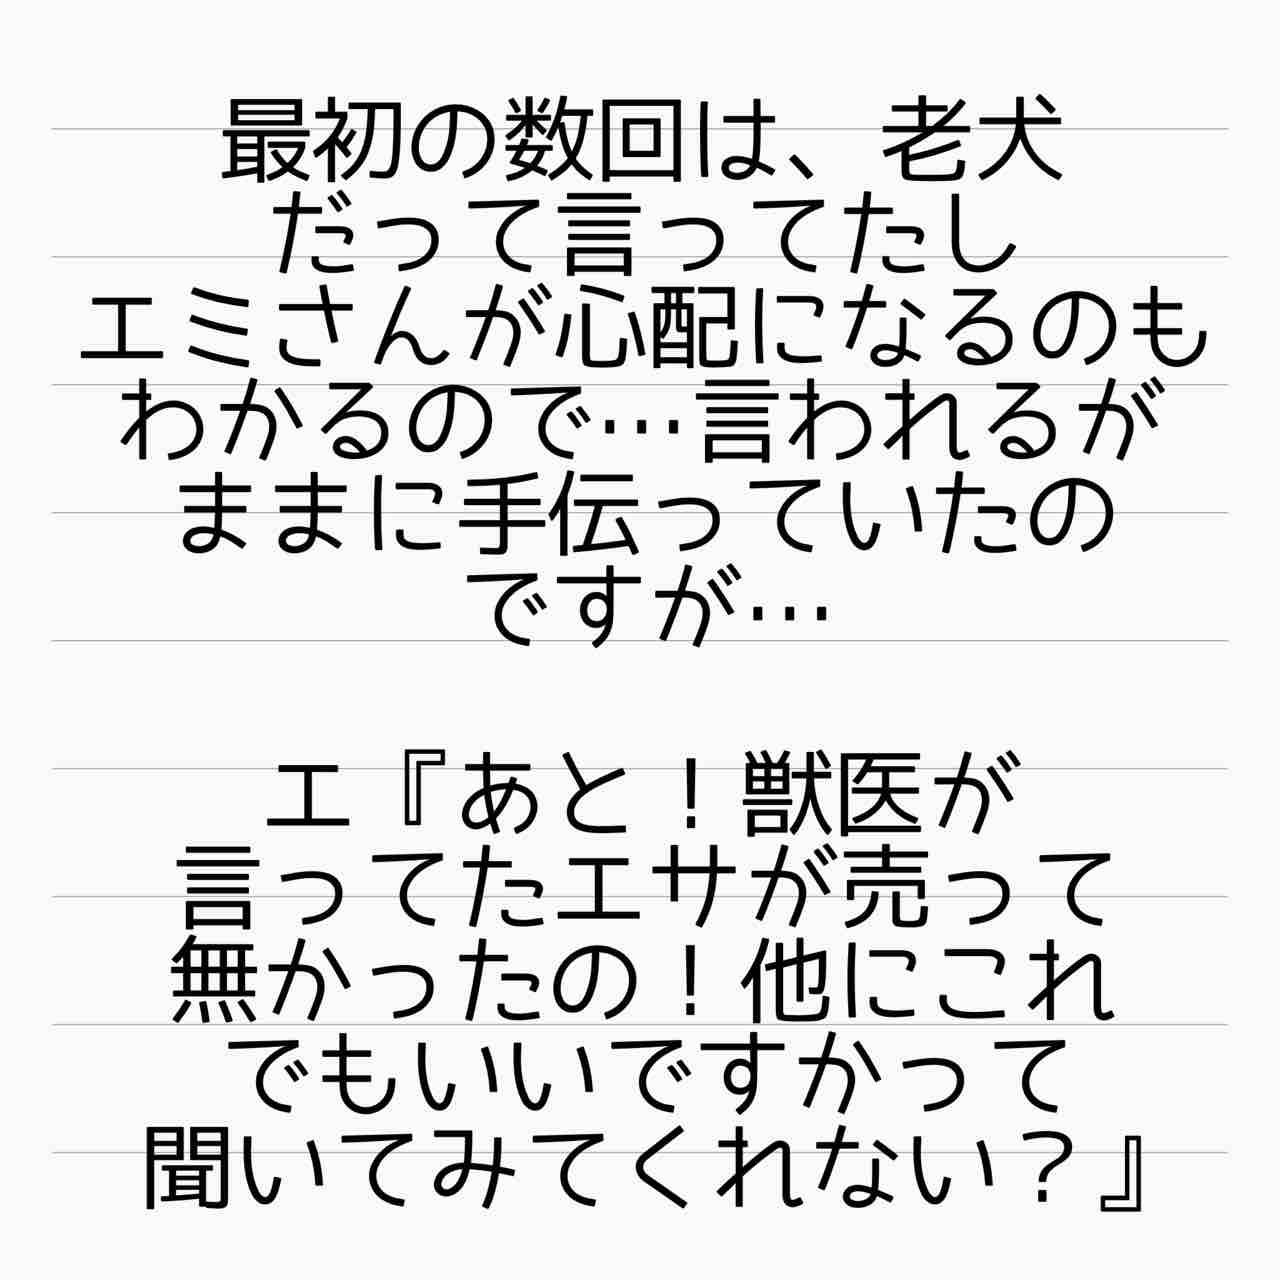 最初の数回は、老犬
だって言ってたし
エミさんが心配になるのも
わかるので…言われるが
ままに手伝っていたの
ですが…
エ『あと！獣医が
言ってたエサが売って
無かったの！他にこれ
でもいいですかって
聞いてみてくれない？』